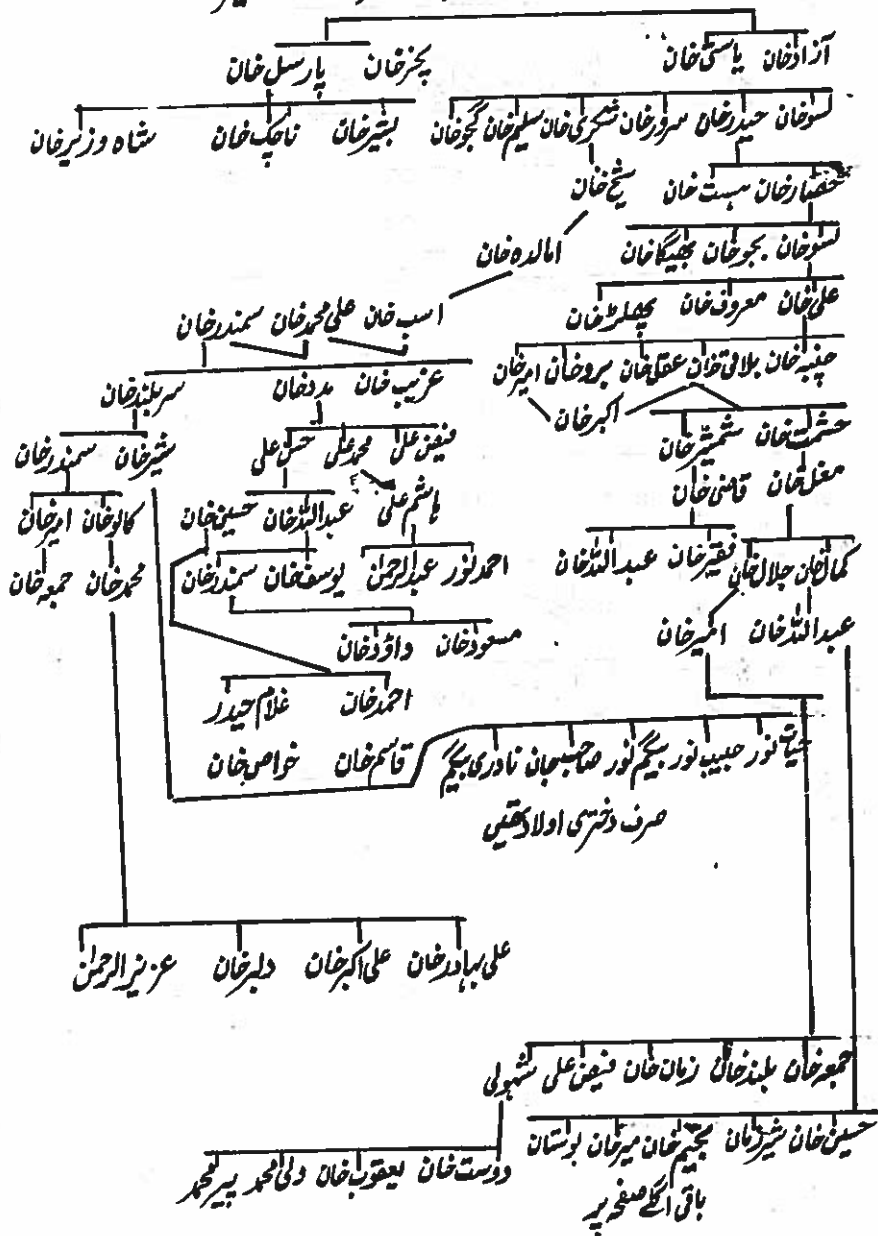 آزاد خان یاستی خان
پجز خان پارسل خان
لسو خان حیدر خان سرور خان شکری خان سلیم خان گجو خان
بشیر خان ناچک خان شاہ وزیر خان
حصار خان ہست خان
شیخ خان
لسو خان بجو خان بھیگا خان
امالدہ خان
علی خان معروف خان پچھلڑ خان
اسب خان علی محمد خان سمندر خان
چنبہ خان بلاقی خان عقلی خان بیرو خان امیر خان
غریب خان مدد خان سر بلند خان
اکبر خان
حشمت خان شمشیر خان
فیض علی محمد علی حسن علی
شیر خان سمندر خان
مغل خان قاضی خان
ہاشم علی عبداللہ خان حسین خان
کالو خان امیر خان
کمال خان جلال خان فقیر خان عبداللہ خان
احمد نور عبدالرحمٰن یوسف خان سمندر خان
محمد خان جمعہ خان
عبداللہ خان امیر خان
مسعود خان داؤد خان
احمد خان غلام حیدر
قاسم خان خواص خان
حیات نور حبیب نور بیگم نور صاحب جان نادری بیگم
صرف دختری اولاد تھیں
علی بہادر خان علی اکبر خان دلبر خان عزیز الرحمٰن
جمعہ خان بلند خان زمان خان فیض علی شہولی
حسین خان شیر زمان مجیم خان میر خان بوستان
دوست خان یعقوب خان ولی محمد پیر محمد
باقی اگلے صفحہ پر